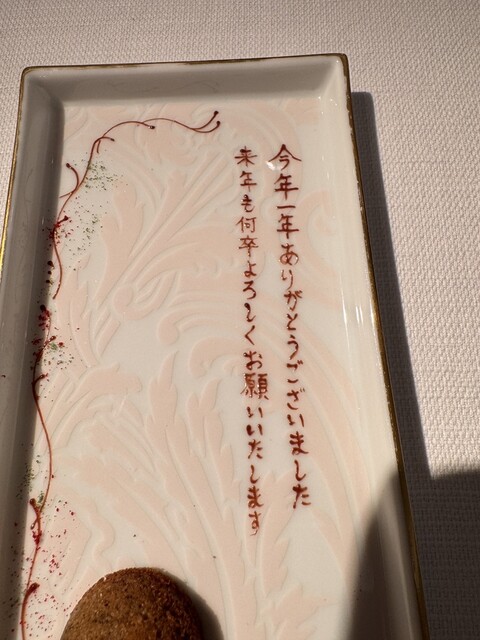 今年一年ありがとうございました
来年も何卒よろしくお願いいたします